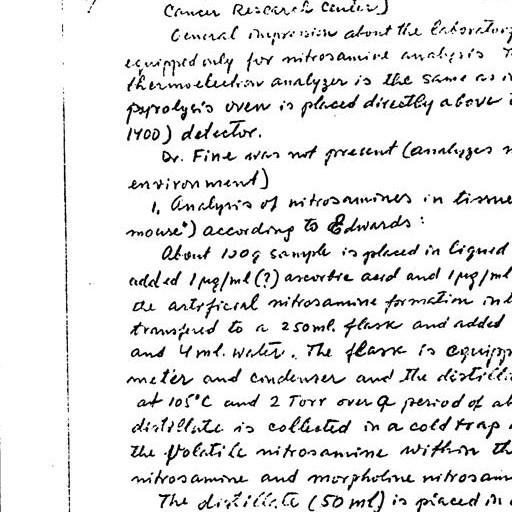 Cancer Research Center)
General impression about the laboratory
equipped only for nitrosamine analysis
thermoelectron analyzer is the same as
pyrolysis oven is placed directly above
1400) detector.
Dr. Fine was not present (analyzes
environment)
1. Analysis of nitrosamines in tissue
mouse") according to Edwards:
About 120g sample is placed in liquid
added 1 µg/ml (?) ascorbic acid and 1 µg/ml
the artificial nitrosamine formation
transfered to a 250ml. flask and added
and 4 ml. water. The flask is equipp
meter and condenser and the distilla
at 105°C and 2 Torr over a period of
distillate is collected in a cold trap
the volatile nitrosamine within th
nitrosamine and morpholine nitrosam
The distillate (50 ml) is placed in